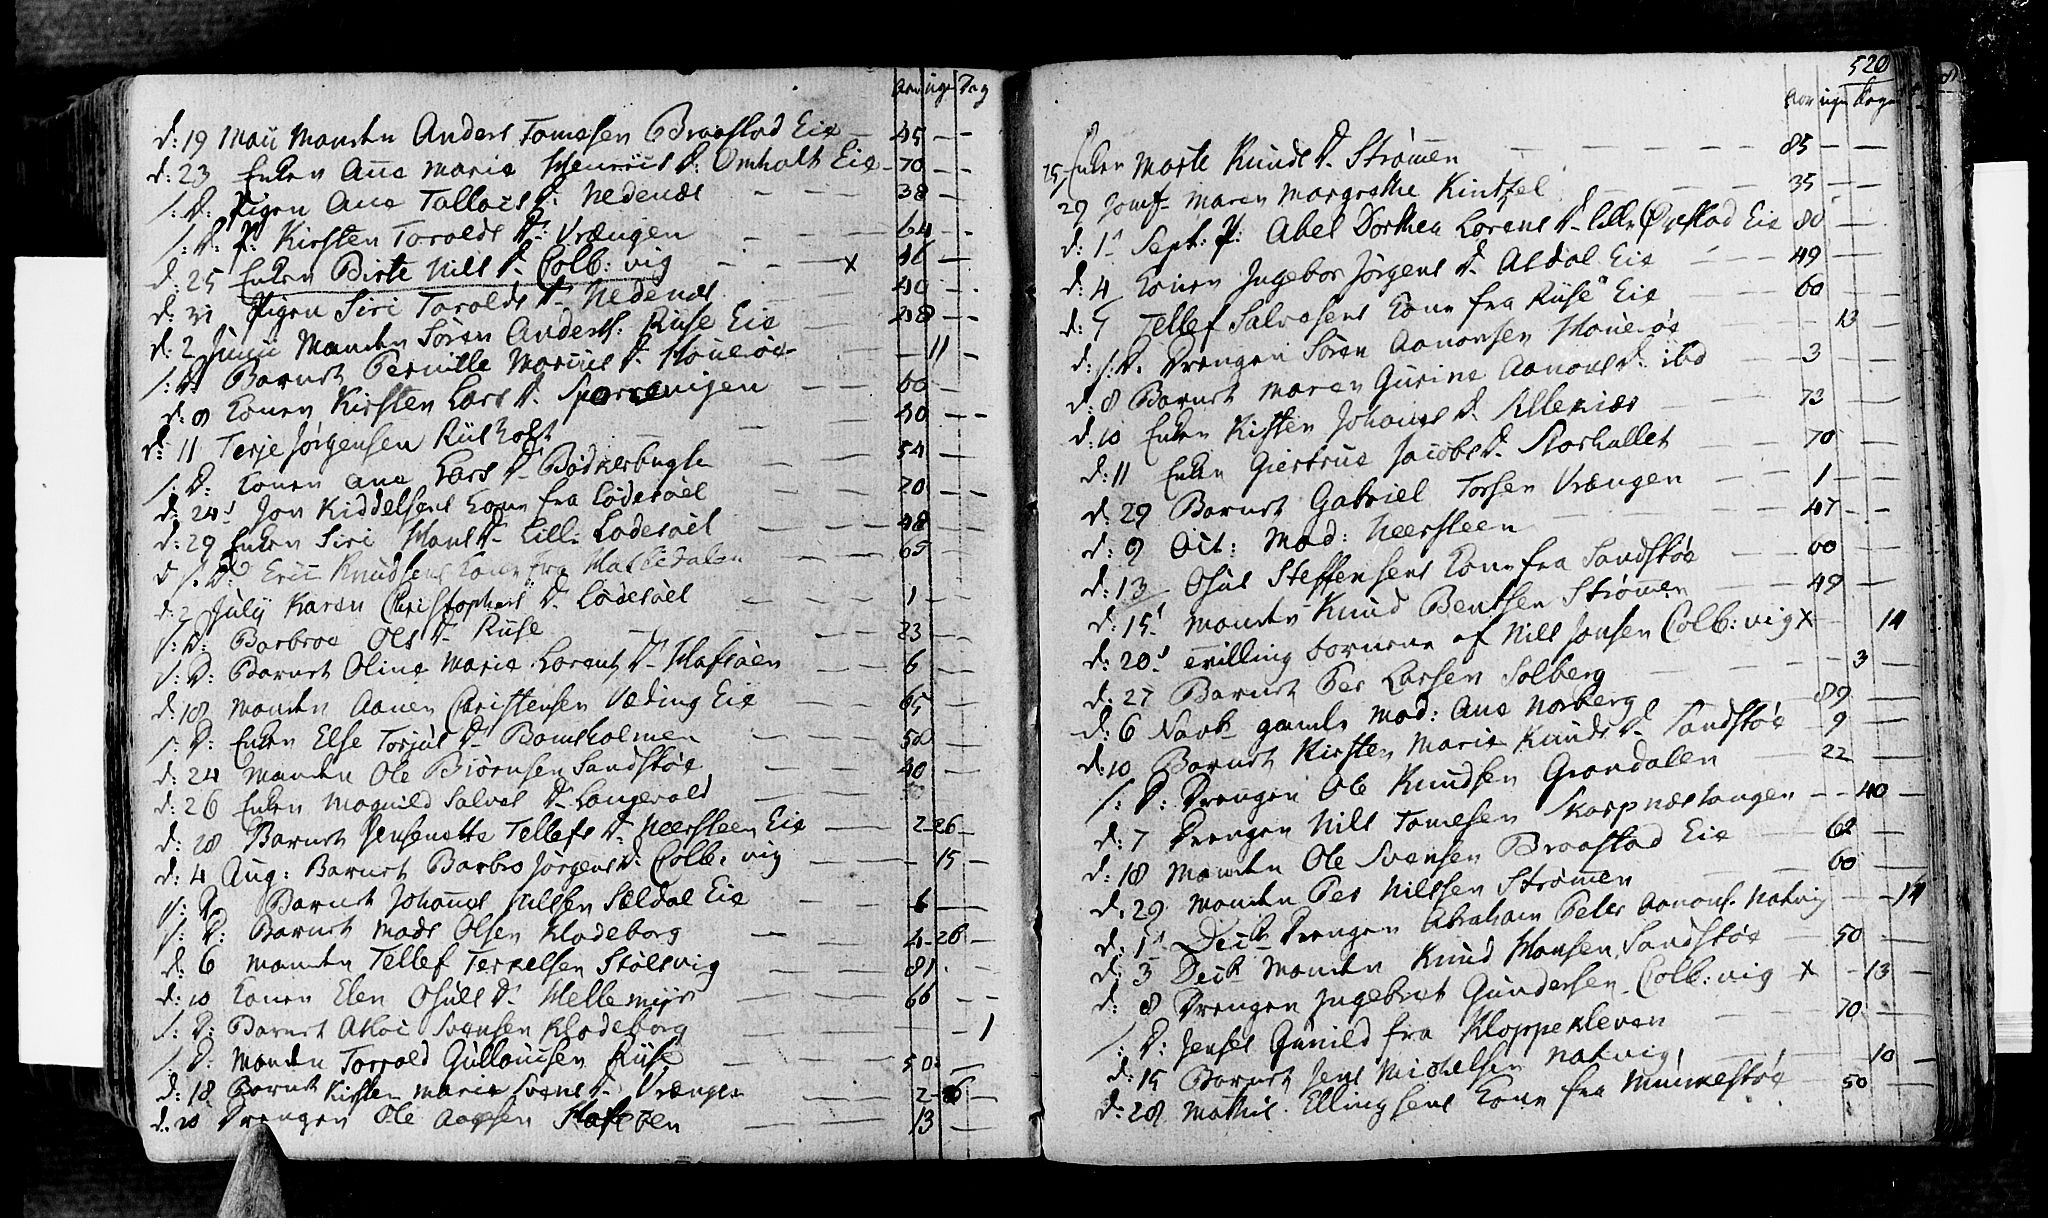 Aar uger Dag
d: 19 Maii Manden Anders Tomesen Braastad Eie — 45 — —
d: 23 Enken Añe Marie Henrics D: Omholt Eie — 70 — —
s: D: Pigen Ane Tallacs D: Nedenæs — — 38 — —
s: D: P: Kirsten Torolds D: Vrængen — — — 64 — —
d: 25 Enken Birte Nills D. Colb: vig — — — x 46 —
d: 31 Pigen Siri Torolds D. Nedenæs — — 40 — .
d: 2 Junii Manden Sören Anders: Riise Eie — — 48 — —
s: D: Barnet Pernille Marcus D. Houeröe — — — 11 —
d: 9 Konen Kirsten Lars D. Sporrevigen — — 60 — —
d: 11 Terje Jörgensen Riisholt — — 40 — —
s: D: Konen Ane Lars D. Bödkerbugten — — 54 — —
d: 24 Jon Kiddelsens Kone fra Lödesöel — — 20 — —
d: 29 Enken Siri Hans D. Lille Lodesöel — — 48 — —
d s. D: Eric Knudsens Kone fra Hassedalen — 65 — —
d: 2 July Karen Christophers D. Lödesöel — — 1 — —
s: D: Barbroe Ols D. Riise — — — 23 — —
s: D: Barnet Oline Marie Lorentz D. Hafsöen — — 6 — —
d: 18 Manden Aanen Christensen Væding Eie — — 65 — —
s: D: Enken Else Torjus D. Bomsholmen — — 50 — —
d: 24 Manden Ole Biörnsen Sandstöe — — 40 — —
d: 26 Enken Magnild Salves D. Langevold — —
d: 28 Barnet Jensenette Tellefs D. Neersteen Eie — 2 — 26 —
d: 4 Aug: Barnet Barbro Jörgens D. Colb: vig — — — 15 —
s: D: Barnet Johannes Nilsen Sældal Eie — — 6 — —
s: D: Barnet Mads Olsen Klodeborg — 4 — 26 —
d: 6 Manden Tellef Terkelsen Stölsvig — — 81 . —
d: 10 Konen Elen Osuls D. Hellemyr — — 66 — —
s: D: Barnet Akoi Svensen Klodeborg — — — — 1
s: D: Manden Torrald Gullouisen Riise — — 50 —
d: 18 Barnet Kirsten Marie Svens D. Vrængen — — 2 — 6 —
d. 20 Drengen Ole Aagesen Hafsöen — — 13 — —
520
Aar uger Dage
25 Enken Marte Knuds D. Strömen — — — 85 — —
29 Jomf. Maren Margrethe Kintzel — — 35 — —
d: 1 Sept: P: Abel Dorthea Lorens D. lille Örestad Eie 80 —
d: 4 Konen Ingebor Jörgens D. Asdal Eie — — 49 —
d: 5 Tellef Salvesens Kone fra Riise Eie — — 60 —
d: s: D. Drengen Sören Aanonsen Houeröe — — — 13 —
d: 8 Barnet Maren Gurine Aanons D. ibd — — 3 — —
d: 10 Enken Kisten Johannes D. — — 73 — —
d: 11 Enken Giertrue Jacobs D. Storhallet — — 70 — —
d: 29 Barnet Gabriel Torsen Vrængen — 1 — —
d: 9 Oct: Mad: Neersteen — — 47 — —
d: 13 Osul Steffensens Kone fra Sandstöe — — 60 —
d: 15 Manden Knud Bentsen Strömen — — 49 —
d: 20 tvilling börnene af Nills Jonsen Colb: vig x — — 14
d: 27 Barnet Per Larsen Solberg — — — 3 —
d: 6 Novb gamle Mad: Ane Norberg — — 89 —
d: 10 Barnet Kirsten Marie Knuds D. Sandstöe — 9 —
s: D: Drengen Ole Knudsen Grandalen — 22 —
d: 7 Drengen Nils Tomesen Skarpnæstangen — — 40 —
d: 18 Manden Ole Svensen Braastad Eie — 62 —
d. 29 Manden Per Nilssen Strömen — — 60 —
d: 1 Decb Drengen Abraham Peter Aanons. Natvig — — 14
d: 3 Decb Manden Knud Hansen Sandstöe — 50 —
d: 8 Drengen Ingebret Gundersen Colb: vig x — 13 —
s: D: Gunild fra Kloppekleven — — 70 —
d: 15 Barnet Jens Michelsen Natvig — — — 10 —
d: 28 Mathis Ellingsens Kone fra Munkestöe — 50 —